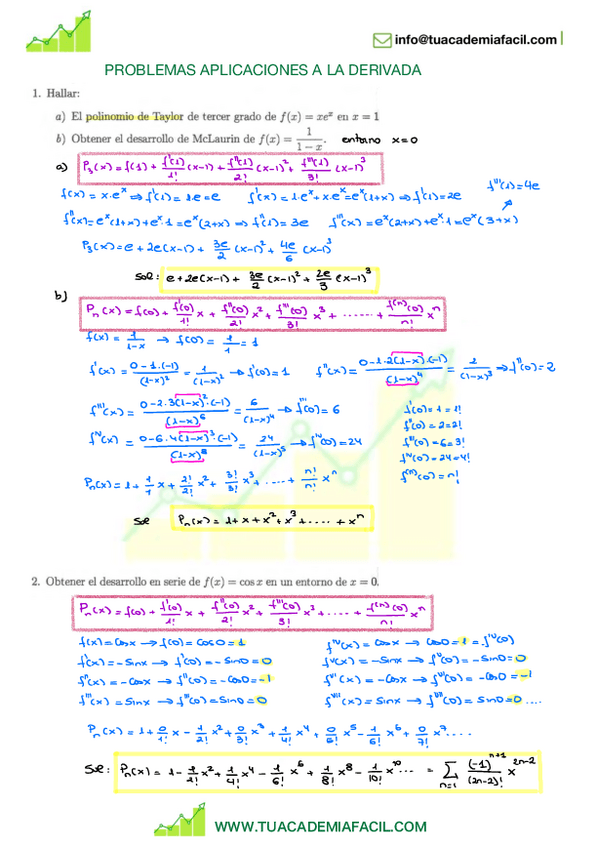 info@tuacademiafacil.com
PROBLEMAS APLICACIONES A LA DERIVADA
1. Hallar:
a) El polinomio de Taylor de tercer grado de f(x) = xeˣ en x = 1
b) Obtener el desarrollo de McLaurin de f(x) = 1/(1−x). entorno x=0
a) P₃(x) = f(1) + f'(1)/1! (x-1) + f''(1)/2! (x-1)² + f'''(1)/3! (x-1)³
f(x) = x·eˣ ⇒ f(1) = 1·e = e f'(x) = 1·eˣ + x·eˣ = eˣ(1+x) ⇒ f'(1) = 2e f'''(1) = 4e
f''(x) = eˣ(1+x) + eˣ·1 = eˣ(2+x) ⇒ f''(1) = 3e f'''(x) = eˣ(2+x) + eˣ·1 = eˣ(3+x)
P₃(x) = e + 2e(x-1) + 3e/2 (x-1)² + 4e/6 (x-1)³
Sol: e + 2e(x-1) + 3e/2 (x-1)² + 2e/3 (x-1)³
b)
Pₙ(x) = f(0) + f'(0)/1! x + f''(0)/2! x² + f'''(0)/3! x³ + ...... + f⁽ⁿ⁾(0)/n! xⁿ
f(x) = 1/(1-x) → f(0) = 1/1 = 1
f'(x) = (0-1·(-1))/(1-x)² = 1/(1-x)² → f'(0) = 1 f''(x) = (0-1·2(1-x)·(-1))/(1-x)⁴ = 2/(1-x)³ → f''(0) = 2
f'''(x) = (0-2·3(1-x)²·(-1))/(1-x)⁶ = 6/(1-x)⁴ → f'''(0) = 6 f'(0) = 1 = 1!
f''(0) = 2 = 2!
f'''(0) = 6 = 3!
fᴵⱽ(x) = (0-6·4(1-x)³·(-1))/(1-x)⁸ = 24/(1-x)⁵ → fᴵⱽ(0) = 24 fᴵⱽ(0) = 24 = 4!
f⁽ⁿ⁾(0) = n!
Pₙ(x) = 1 + 1/1 x + 2!/2! x² + 3!/3! x³ + .... + n!/n! xⁿ
Sol Pₙ(x) = 1 + x + x² + x³ + .... + xⁿ
2. Obtener el desarrollo en serie de f(x) = cos x en un entorno de x = 0.
Pₙ(x) = f(0) + f'(0)/1! x + f''(0)/2! x² + f'''(0)/3! x³ + ..... + f⁽ⁿ⁾(0)/n! xⁿ
f(x) = Cosx → f(0) = Cos0 = 1 fᴵⱽ(x) = Cosx → Cos0 = 1 = fᴵⱽ(0)
f'(x) = -Sinx → f'(0) = -Sin0 = 0 fⱽ(x) = -Sinx → fⱽ(0) = -Sin0 = 0
f''(x) = -Cosx → f''(0) = -Cos0 = -1 fⱽᴵ(x) = -Cosx → fⱽᴵ(0) = -Cos0 = -1
f'''(x) = Sinx → f'''(0) = Sin0 = 0 fⱽᴵᴵ(x) = Sinx → fⱽᴵᴵ(0) = Sin0 = 0 ....
Pₙ(x) = 1 + 0/1! x - 1/2! x² + 0/3! x³ + 1/4! x⁴ + 0/5! x⁵ - 1/6! x⁶ + 0/7! x⁷ ....
Sol: Pₙ(x) = 1 - 1/2! x² + 1/4! x⁴ - 1/6! x⁶ + 1/8! x⁸ - 1/10! x¹⁰ ... = ∑ n=1 (-1)ⁿ⁺¹/(2n-2)! x²ⁿ⁻²
WWW.TUACADEMIAFACIL.COM